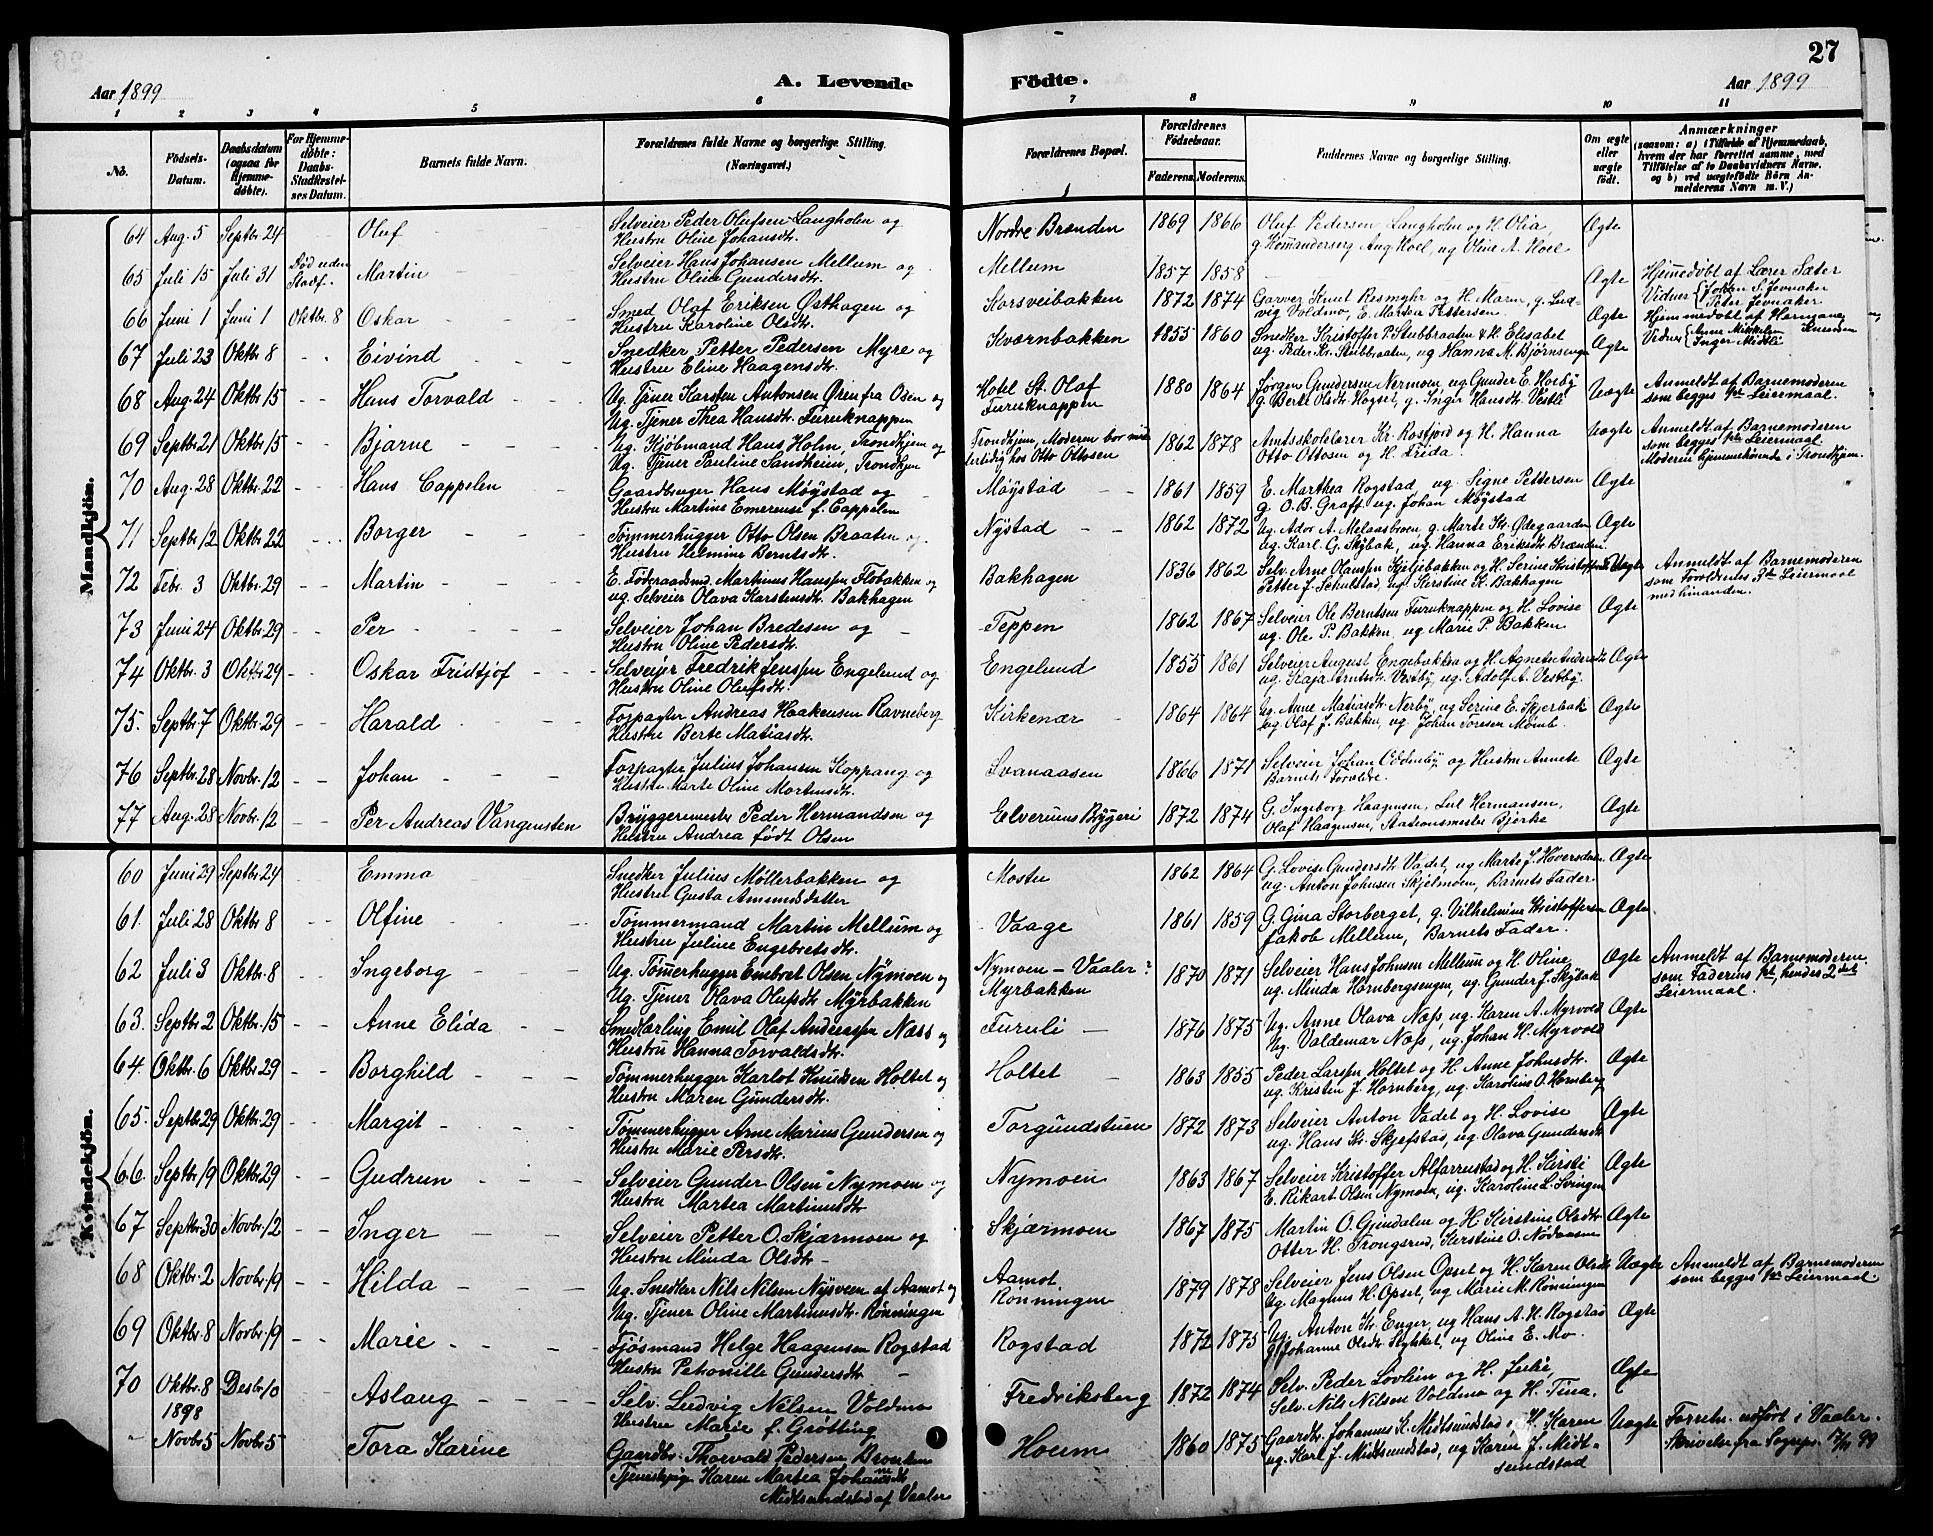 27
Aar 1899
A. Levende
Födte.
Aar 1899
1 2 3 4 5 6 7 8 9 10 11
No.
Födsels-
Datum.
Daabsdatum
(ogsaa for
Hjemme-
døbte).
For Hjemme-
døbte:
Daabs-
Stadfestel-
ses Datum.
Barnets fulde Navn.
Forældrenes fulde Navne og borgerlige Stilling.
(Næringsvei.)
Forældrenes Bopæl.
Forældrenes
Födselsaar.
Faderens. Moderens.
Faddernes Navne og borgerlige Stilling.
Om ægte
eller
uægte
født.
Anmærkninger
(saasom: a) i Tilfælde af Hjemmedaab,
hvem der har forrettet samme, med
Tilföielse af to Daabsvidners Navne,
og b) ved uægtefödte Börn An-
melderens Navn m. V.)
Mandkjön.
64 Aug. 5 Septbr 24 Oluf Selveier Peder Olufsen Langholen og Nordre Brænden 1869 1866 Oluf Pedersen Langholm og H. Olia, Ægte
Hustru Oline Johansdt.
65 Juli 15 Juli 31 Død uden Stadf. Martin Selveier Hans Johansen Mellum og Mellum 1857 1858 Ægte Hjemmedøbt af Lærer Sæter
Hustru Olina Gundersdt. Vidner Johan P. Jevnaker
Peter Jevnaker
66 Juni 1 Juni 1 Oktbr. 8 Oskar Smed Olaf Eriksen Østhagen og Korsveibakken 1872 1874 Ægte Hjemmedøbt af
Hustru Karoline Olsdt. Vidner
67 Juli 23 Oktbr 8 Eivind Snedker Petter Pedersen Myre og Kværnbakken 1855 1860 Snedker Kristoffer P. Stubbraaten & H. Elisabet Ægte
Hustru Eline Haagensdt. ug. Peder Kr. Stubbraaten, ug Hanna M. Bjørnsengen
68 Aug. 24 Oktbr 15 Hans Torvald Ug. Tjener Karsten Antonsen Øren fra Osen og Hotel St. Olaf 1880 1864 Jørgen Gundersen Nermoen, ug Gunder E. Hoelby Uægte Anmeldt af Barnemoderen
Ug. Tjener Thea Hansdt. Furuknappen Furuknappen g. Berte Olsdt. Hogset, g. Inger Hansdt. Vestli som begges 1ste Leiermaal.
69 Septbr 21 Oktbr 15 Bjarne Ug. Kjöbmand Hans Holm, Trondhjem og Trondhjem, Moderen bor mid- 1862 1878 Amtsskolelærer Kr. Rostfjord og H. Hanna Uægte Anmeldt af Barnemoderen
Ug. Tjener Pauline Sandheim, Trondhjem lertidig hos Otto Ottosen Otto Ottosen og H. Frida. som begges 1ste Leiermaal.
Moderen hjemmehørende i Trondhjem.
70 Aug. 28 Oktbr 22 Hans Cappelen Gaardbruger Hans Møystad og Møystad 1861 1859 E. Marthea Rogstad, ug. Signe Pettersen Ægte
Hustru Martine Emerense f. Cappelen g. O.B. Graff, ug. Johan Møystad
71 Septbr 12 Oktbr 22 Borger Tømmerhugger Otto Olsen Braaten og Nystad 1862 1872 Ug. Ador A. Melaasbroen, g. Marte Kr. Ødegaarden Ægte
Hustru Helmine Berntsdt. ug. Karl G. Skybak, ug Hanna Eriksdt Brænden
72 Febr. 3 Oktbr 29 Martin E. Föderaadsmd. Martinus Hansen Flobakken og Bakhagen 1836 1862 Selv. Arne Olausen Kjeljebakken og H. Serine Uægte Anmeldt af Barnemoderen
ug. Selveier Olava Karstensdt. Bakhagen Petter J. Schulstad, ug. Kerstine K. Bakhagen som Forældrenes 3die Leiermaal
med hinanden.
73 Juni 24 Oktbr 29 Per Selveier Johan Bredesen og Teppen 1862 1867 Selveier Ole Berntsen Furuknappen og H. Lovise Ægte
Hustru Oline Pedersdt. ug. Ole P. Bakken, ug Marie P. Bakken
74 Oktbr. 3 Oktbr 29 Oskar Fridtjof Selveier Fredrik Jenssen Engelund og Engelund 1855 1861 Selveier August Engebakken og H. Agnete Andersdt Ægte
Hustru Oline Olufsdt. ug. Kaja Arntsdt. Vestby, ug. Adolf A. Vestby.
75 Septbr 7 Oktbr 29 Harald Forpagter Andreas Haakensen Ravneberg Kirkenær 1864 1864 Ug. Anne Matiasdt. Nerby, ug Serine E. Skjerbak Ægte
Hustru Berte Matiasdt. ug Olaf J. Bakken, ug. Johan Toresen Momb.
76 Septbr 28 Novbr. 12 Johan Forpagter Julius Johansen Koppang og Svanaasen 1866 1871 Selveier Johan Oddenby og Hustru Annete Ægte
Hustru Marte Oline Mortensdt. Barnets Forældre.
77 Aug. 28 Novbr. 12 Per Andreas Vangensten Bryggermester Peder Hermandsen og Elverums Bryggeri 1872 1874 G. Ingeborg Haagensen, Lul Hermansen, Ægte
Hustru Andrea født Olsen Olaf Haagensen, Stationsmester Bjerke
Kvindekjön.
60 Juni 29 Septbr 24 Emma Snedker Julius Møllerbakken og Mostu 1862 1864 G. Lovise Gundersdt. Vadet, ug Marte J. Hoversdalen Ægte
Hustru Gusta Amundsdatter ug. Anton Johnsen Skjelmoen, Barnets Fader.
61. Juli 28 Oktbr 8 Olfine Tømmermand Martin Mellum og Vaage 1861 1859 G. Gina Storberget, g. Vilhelmine Kristoffersen Ægte
Hustru Juline Engebretsdt. Jakob Mellum, Barnets Fader.
62 Juli 3 Oktbr 8 Ingeborg Ug. Tømerhugger Embret Olsen Nymoen og Nymoen - Vaaler? 1870 1871 Selveier Hans Johnsen Mellum og H. Oline Ægte Anmeldt af Barnemoderen
Ug. Tjener Olava Olufsdt Myrbakken Myrbakken ug. Minda Hornbergsengen, ug. Gunder J. Skybak som Faderens 1ste, hendes 2det
Leiermaal.
63. Septbr 2 Oktbr. 15 Anne Elida Smedkarling Emil Olaf Andreassen Næss og Furuli 1876 1875 Ug. Anne Olava Næss, ug. Karen A. Myrvold Ægte
Hustru Hanna Torvaldsdt. Ug. Valdemar Næss, ug Johan H. Myrvold
64. Oktbr. 6 Oktbr 29 Borghild Tømmerhugger Karlot Knudsen Holtet og Holtet 1863 1855 Peder Larssen Holtet og H. Anne Johnsdt. Ægte
Hustru Maren Gundersdt. ug. Kristen J. Hornberg, ug. Karoline O. Hornberg
65. Septbr 29 Oktbr 29 Margit Tømmerhugger Arne Marius Gundersen og Torgundstuen 1872 1873 Selveier Anton Vadet og H. Lovise Ægte
Hustru Marie Persdt. ug. Hans Kr. Skjefstad, ug. Olava Gundersdt
66. Septbr 19 Oktbr 29 Gudrun Selveier Gunder Olsen Nymoen og Nymoen 1863 1867 Selveier Kristoffer Alfarrustad og H. Kirsti Ægte
Hustru Martea Martinusdt E. Rikart Olsen Nymoen, ug. Karoline L. Svingen
67 Septbr 30 Novbr. 12 Inger Selveier Petter O. Skjærmoen og Skjærmoen 1867 1875 Martin O. Gjendalen og H. Kirstine Olsdt. Ægte
Hustru Minda Olsdt. Otter H. Trongsrud, Kerstine O. Nødaasen
68 Oktbr. 2 Novbr. 19 Hilda Ug. Snedker Nils Nilsen Nysveen af Aamot og Aamot 1879 1878 Selveier Jens Olsen Opset og H. Karen Olsdt Uægte Anmeldt af Barnemoderen
Ug. Tjener Oline Martinusdt. Rønningen Rønningen Ug. Magnus H. Opset, ug Marie M. Rønningen som begges 1ste Leiermaal.
69 Oktbr. 8 Novbr. 19 Marie Fjösmand Helge Haagensen Rogstad Rogstad 1872 1875 Ug. Anton Kr. Enger, ug Hans A. H. Rogstad Ægte
Hustru Petronille Gundersdt. g. Johanne Olsdt. Stykket, ug Oline E. Mo.
70 Oktbr. 8 1898 Desbr. 10 Aslaug Selv. Ludvig Nilsen Voldmo Fredriksberg 1872 1874 Selv. Peder Løvlien og H. Julie, Ægte
Hustru Marie f. Grötting Selv. Nils Nilsen Voldmo og H. Tina.
" Novbr 5 Novbr 5 Tora Karine Gaardbr. Thorvald Pedersen Bronken Hoem 1860 1875 Gaardbr. Johannes K. Midtsundstad, H. Karen Uægte Forretn. udført i Vaaler.
Tjenestepige Karen Martea Johansdt ug. Karl J. Midtsundstad, ug Karen J. Midt- Skrivelse fra Sognepr. 17/11 99
Midtsundstad af Vaaler sundstad